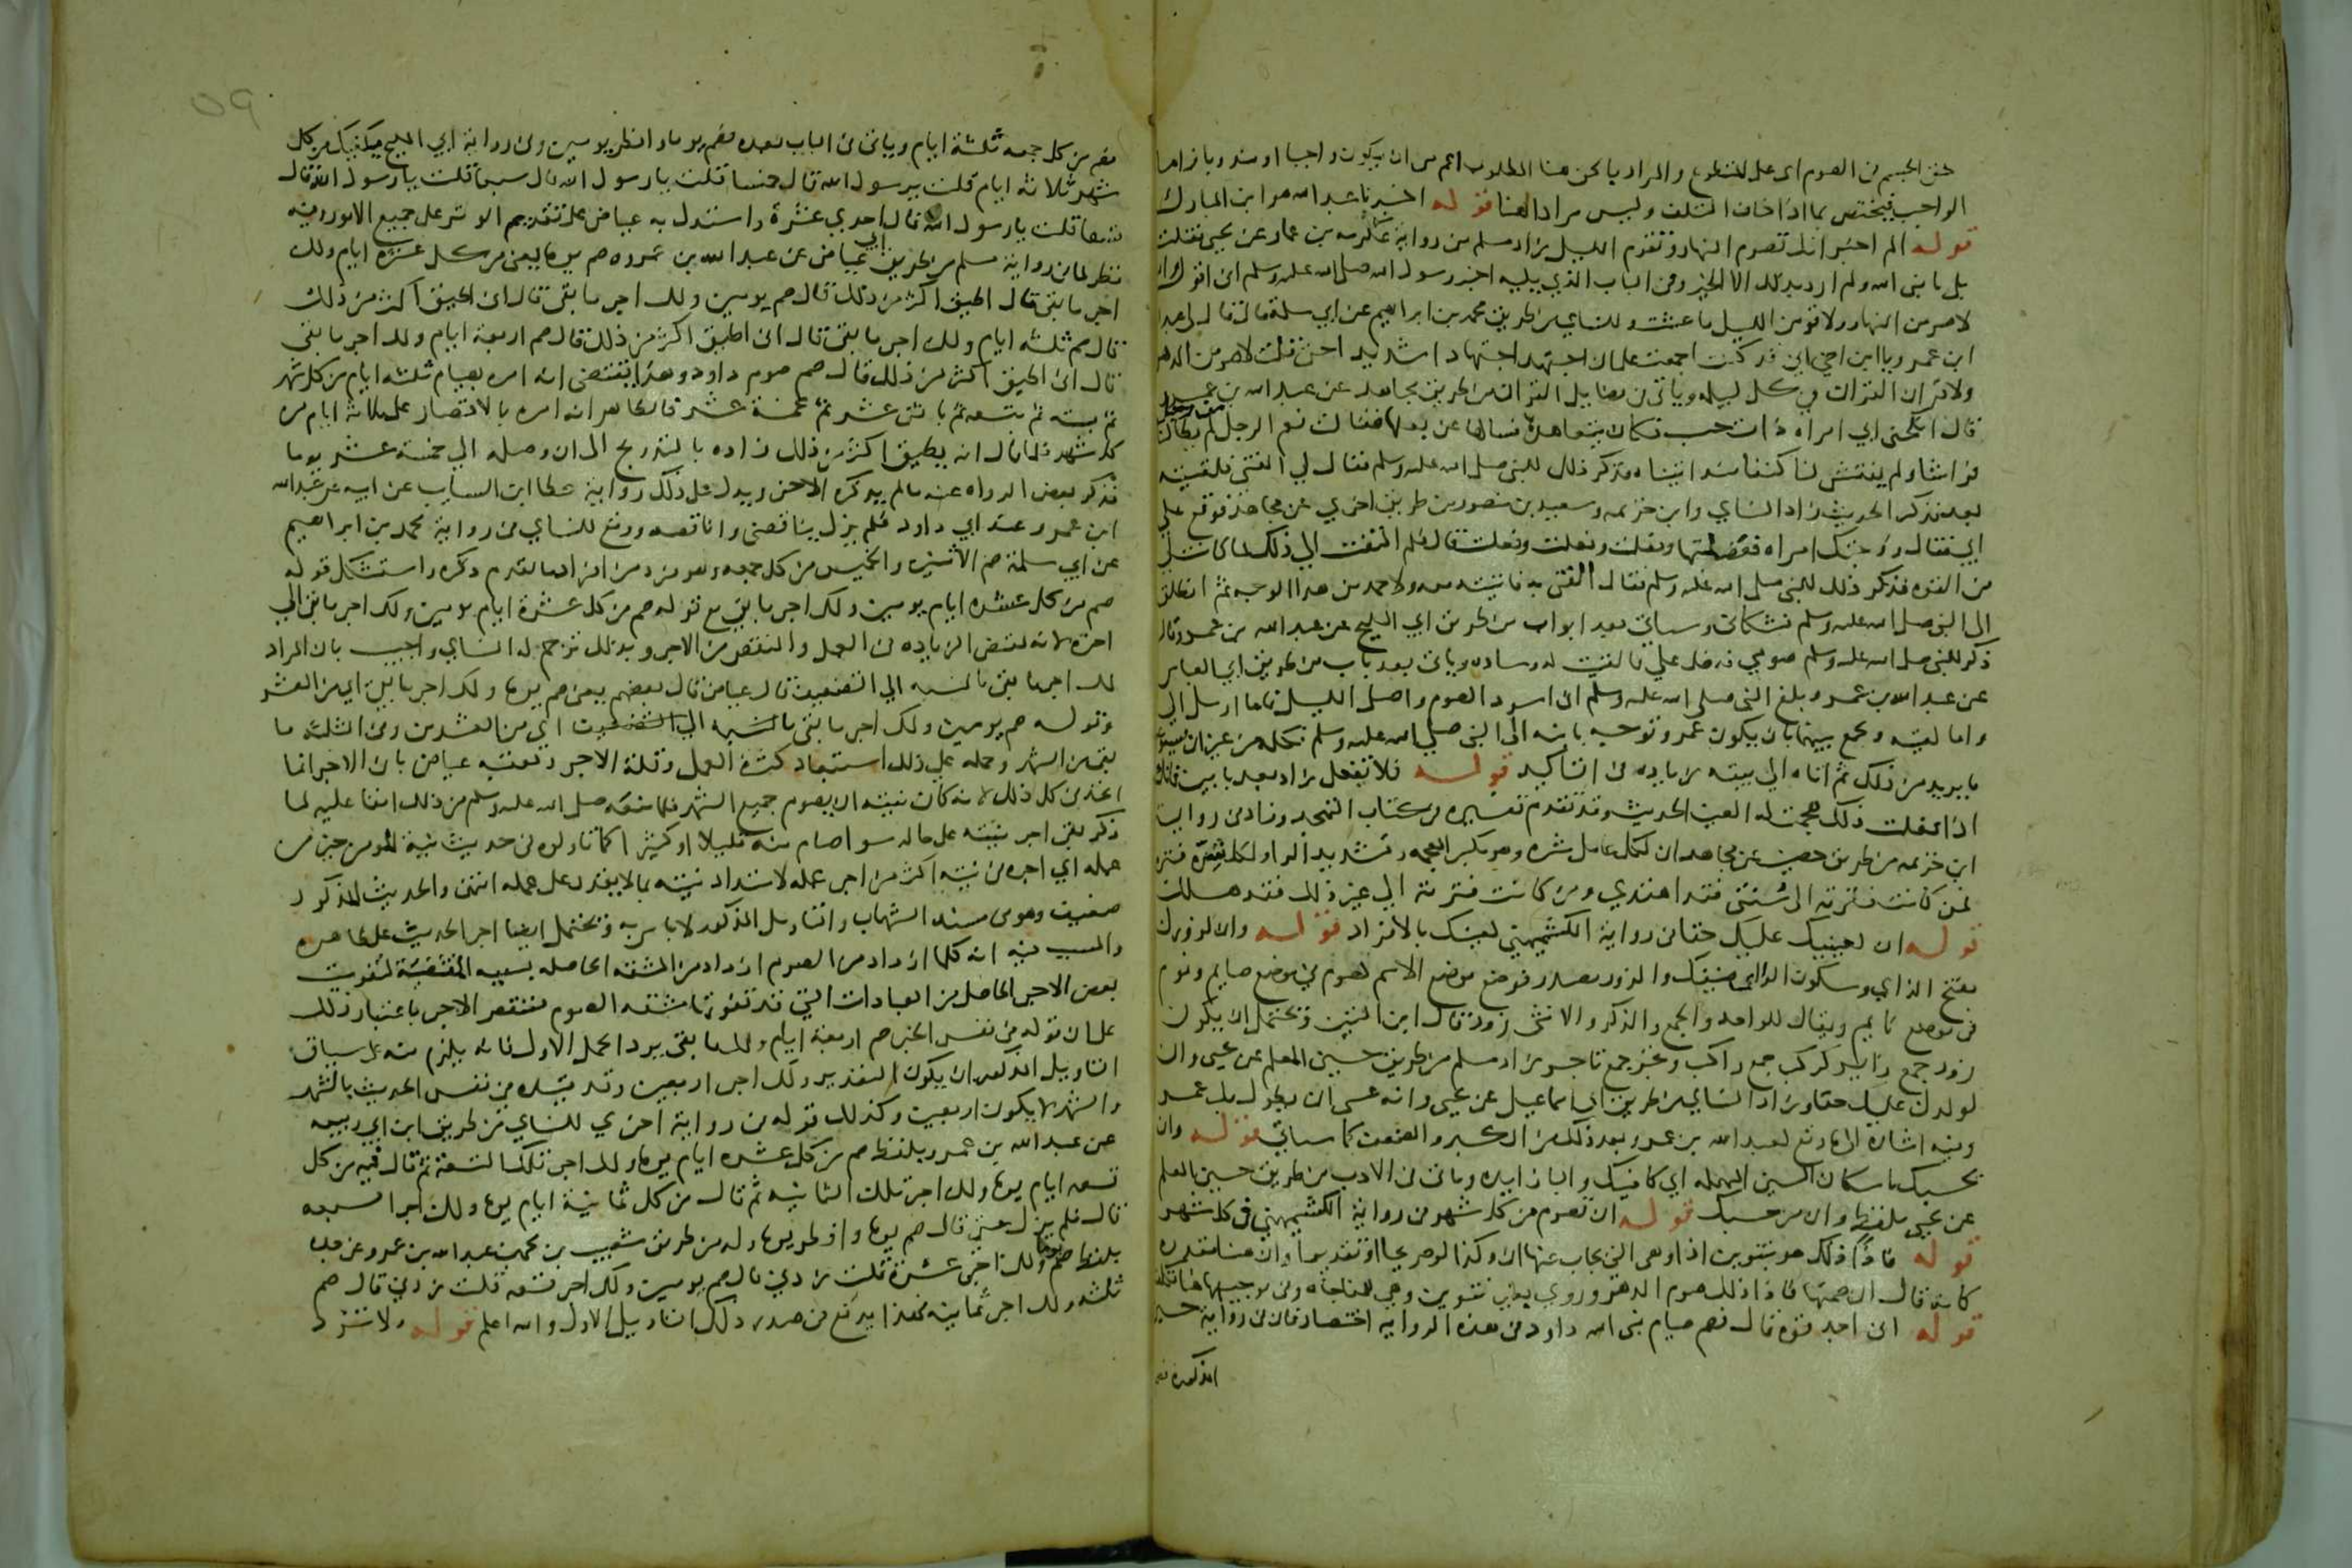 حق الجسم في الصوم اي على المتطوع والمراد بالحق هنا المطلوب اعم من ان يكون واجبا او مندوبا فاما
الواجب فيختص بما اذا خاف التلف وليس مرادا هنا قوله اخبرنا عبد الله هو ابن المبارك
قوله الم اخبر انك تصوم النهار وتقوم الليل زاد مسلم من رواية عكرمه بن عمار عن يحيى فقلت
بلى يا نبي الله ولم ارد بذلك الا الخير وفي الباب الذي يليه اخبر رسول الله صلى الله عليه وسلم اني اقول والله
لاصومن النهار ولاقومن الليل ما عشت وللنساي من طريق محمد بن ابراهيم عن ابي سلمة قال قال لي عبد الله
ابن عمرو يا ابن اخي اني قد كنت اجمعت على ان اجتهد اجتهادا شديدا حتى قلت لاصومن الدهر
ولاقران القران في كل ليله وياتي في فضايل القران من طريق مجاهد عن عبد الله بن عمرو
قال انكحني ابي امراه ذات حسب فكان يتعاهدها فسالها عن بعلها فقالت نعم الرجل من رجل لم يطا لنا
فراشا ولم يفتش لنا كنفا منذ اتيناه فذكر ذلك للنبي صلى الله عليه وسلم فقال لي القني فلقيته
بعد فذكر الحديث زاد النساي وابن خزيمه وسعيد بن منصور من طريق اخري عن مجاهد فوقع علي
ابي فقال زوجتك امراه فعضلتها وفعلت وفعلت وفعلت قال فلم التفت الي ذلك لما كانت لي
من القوه فذكر ذلك للنبي صلى الله عليه وسلم فقال القني به فاتيته معه ولاحمد من هذا الوجه ثم انطلق
الى النبي صلى الله عليه وسلم فشكاني وسياتي بعد ابواب من طريق ابي المليح عن عبد الله بن عمرو قال
ذكر للنبي صلى الله عليه وسلم صومي فدخل علي فالقيت له وساده وياتي بعد باب من طريق ابي العباس
عن عبد الله بن عمرو بلغ النبي صلى الله عليه وسلم اني اسرد الصوم واصلي الليل فاما ارسل الي
واما لقيته ويجمع بينهما بان يكون عمرو توجه بابنه الى النبي صلى الله عليه وسلم فكلمه من غير ان يستوعب
ما يريد من ذلك ثم اتاه الى بيته زياده في التاكيد قوله فلا تفعل زاد بعد بابين فانك
اذا فعلت ذلك هجمت له العين الحديث وقد تقدم تفسيره في كتاب التهجد وزاد في رواية
ابن خزيمه من طريق حصين عن مجاهد ان لكل عامل شره وهو بكسر المعجمه وتشديد الراء ولكل شره فتره
فمن كانت فترته الى سنتي فقد اهتدي ومن كانت فترته الي غير ذلك فقد هلك
قوله ان لعينيك عليك حقا في رواية الكشميهني لعينك بالافراد قوله وان لزورك
بفتح الزاي وسكون الواو اي لضيفك والزور مصدر فوضع موضع الاسم لصوم في موضع صايم ونوم
في موضع نايم ويقال للواحد والجمع والذكر والانثى زور قال ابن التين ويحتمل ان يكون
زور جمع زاير كركب جمع راكب وتجر جمع تاجر زاد مسلم من طريق حسين المعلم عن يحيى وان
لولدك عليك حقا وزاد النساي من طريق ابي اسماعيل عن يحيى وانه عسى ان يطول بك عمر
وفيه اشارة الى ما وقع لعبد الله بن عمرو بعد ذلك من الكبر والضعف كما سياتي قوله وان
بحسبك باسكان السين المهمله اي كافيك والبا زايده وياتي في الادب من طريق حسين المعلم
عن يحيى بلفظ وان من حسبك قوله ان تصوم من كل شهر في رواية الكشميهني في كل شهر
قوله فاذا ذلك هو بتنوين اذا وهي التي يجاب بها ان وكذا لو صريحا او تقديرا وان هنا مقدره
كانه قال ان صمتها فاذا ذلك صوم الدهر وروي بغير تنوين وهي للمفاجاه وفي توجيهها هنا تكلف
قوله اني اجد قوه قال فصم صيام نبي الله داود في هذه الروايه اختصار فان في رواية حسين
المذكوره فصم
فصم من كل جمعه ثلثة ايام وياتي في الباب بعده فصم يوما وافطر يومين وفي رواية ابي المليح يكفيك من كل
شهر ثلاثة ايام قلت يرسول الله قال خمسا قلت يا رسول الله قال سبعا قلت يا رسول الله قال
تسعا قلت يا رسول الله قال احدي عشرة واستدل به عياض على تقديم الوتر على جميع الامور وفيه
نظر لما في رواية مسلم من طريق ابي عياض عن عبد الله بن عمرو صم يوما يعني من كل عشرة ايام ولك
اجر ما بقي قال اني اطيق اكثر من ذلك قال صم يومين ولك اجر ما بقي قال اني اطيق اكثر من ذلك
قال صم ثلثه ايام ولك اجر ما بقي قال اني اطيق اكثر من ذلك قال صم اربعة ايام ولك اجر ما بقي
قال اني اطيق اكثر من ذلك قال صم صوم داود وهذا يقتضي انه امره بصيام ثلثه ايام من كل شهر
ثم بسته ثم بتسعه ثم باثني عشر ثم بخمسة عشر فالظاهر انه امره بالاقتصار على ثلاثة ايام من
كل شهر فلما قال انه يطيق اكثر من ذلك زاده بالتدريج الى ان وصله الي خمسة عشر يوما
فذكر بعض الرواه عنه ما لم يذكره الاخر ويدل على ذلك رواية عطا ابن السايب عن ابيه عن عبد الله
ابن عمرو عند ابي داود فلم يزل يناقصني واناقصه ووقع للنساي من رواية محمد بن ابراهيم
عن ابي سلمة صم الاثنين والخميس من كل جمعه وهو فرد من افراد ما تقدم ذكره واستشكل قوله
صم من كل عشره ايام يومين ولك اجر ما بقي مع قوله صم من كل عشرة ايام يومين ولك اجر ما بقي الي
اخره لانه يقتضي الزياده في العمل والنقص من الاجر وبذلك ترجم له النساي واجيب بان المراد
لك اجر ما بقي بالنسبه الي التضعيف قال عياض قال بعضهم يعني صم يوما ولك اجر ما بقي اي من العشر
وقوله صم يومين ولك اجر ما بقي بالنسبه الي التضعيف اي من العشرين وفي الثلثه ما
بقي من الشهر وحمله على ذلك استبعاد كثرة العمل وقلة الاجر وتعقبه عياض بان الاجر انما
اتحد في كل ذلك لانه كان نيته ان يصوم جميع الشهر فلما منعه صلى الله عليه وسلم من ذلك ابقا عليه لما
ذكر بقي اجر نيته على حاله سوا صام منه قليلا او كثيرا كما تاولوه في حديث نية المومن خير من
عمله اي اجره في نيته اكثر من اجر عمله لامتداد نيته بما لا يقدر على عمله انتهى والحديث المذكور
ضعيف وهو في مسند الشهاب والتاويل المذكور لا باس به ويحتمل ايضا اجرا الحديث على ظاهره
والسبب فيه انه كلما ازداد من الصوم ازداد من المشقه الحاصله بسببه المقتضية لتفويت
بعض الاجر الحاصل من العبادات التي قد تفوتها مشقه الصوم فينقص الاجر باعتبار ذلك
على ان قوله في نفس الخبر صم اربعة ايام ولك ما بقي يرد الحمل الاول فانه يلزم منه على سياق
التاويل المذكور ان يكون التقدير ولك اجر اربعين وقد قيده في نفس الحديث بالشهر
والشهر لا يكون اربعين وكذلك قوله في رواية اخري للنساي من طريق ابن ابي ربيعه
عن عبد الله بن عمرو بلفظ صم من كل عشره ايام يوما ولك اجر تلك التسعة ثم قال فيه من كل
تسعه ايام يوما ولك اجر تلك الثمانيه ثم قال من كل ثمانية ايام يوما ولك اجر السبعه
قال فلم يزل حتى قال صم يوما وافطر يوما وله من طريق شعيب بن محمد بن عبد الله بن عمرو عن جده
بلفظ صم يوما ولك اجر عشرة قلت زدني قال صم يومين ولك اجر تسعه قلت زدني قال صم
ثلثه ولك اجر ثمانيه فهذا يدفع في صدر ذلك التاويل الاول والله اعلم قوله ولا تزد